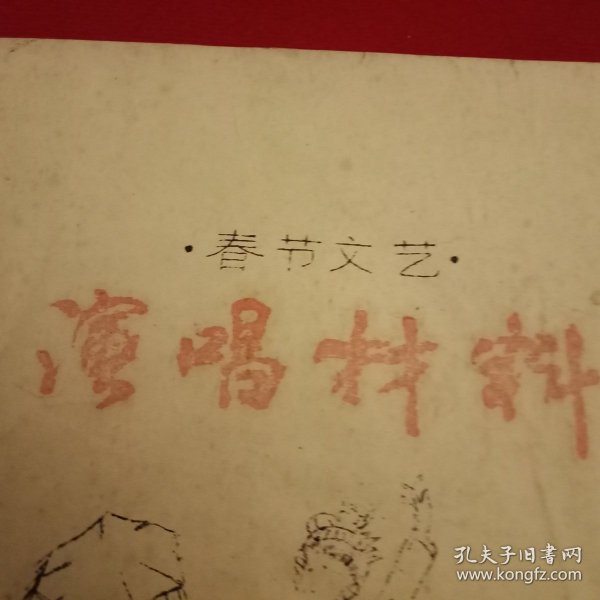 ·春节文艺·
演唱材料
孔夫子旧书网
www.kongfz.com